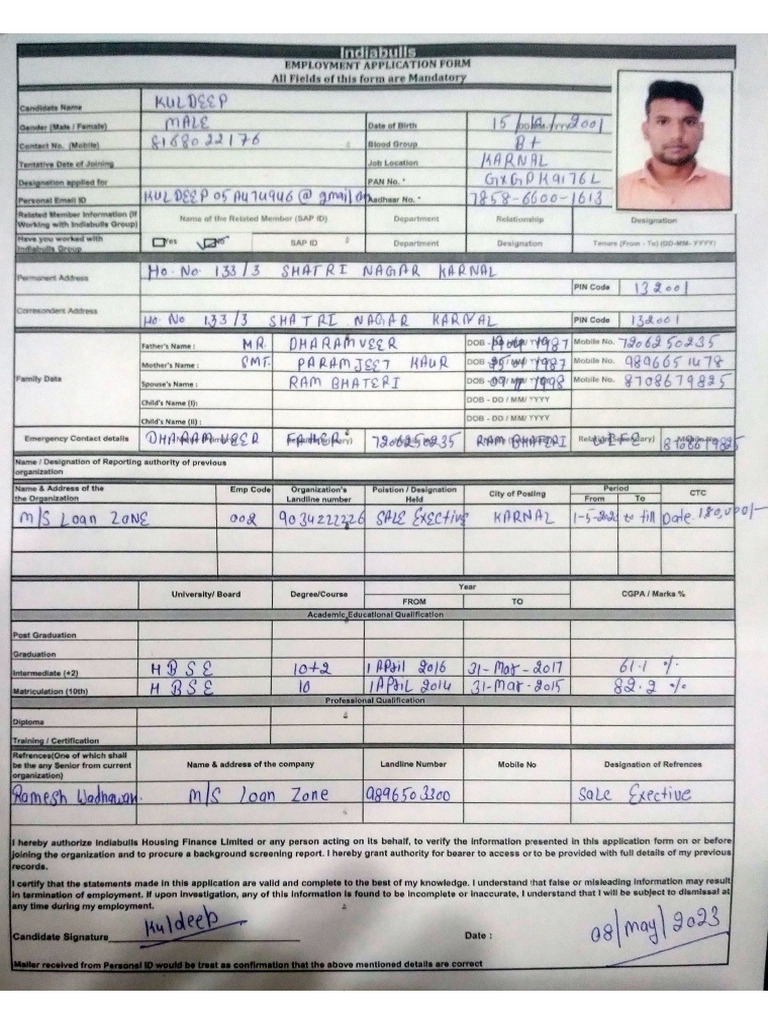 Indiabulls
EMPLOYMENT APPLICATION FORM
All Fields of this form are Mandatory
Candidate Name KULDEEP
Gender (Male / Female) MALE Date of Birth 15 2001
Contact No. (Mobile) 8168022176 Blood Group B+
Tentative Date of Joining Job Location KARNAL
Designation applied for PAN No. * GXGPK9176L
Personal Email ID KULDEEP05A474946@gmail Aadhaar No. * 7858-6600-1613
Related Member Information (If Working with Indiabulls Group) Name of the Related Member (SAP ID) Department Relationship Designation
Have you worked with Indiabulls Group Yes No SAP ID Department Designation Tenure (From - To) (DD-MM- YYYY)
Permanent Address Ho. No. 133/3 SHATRI NAGAR KARNAL
PIN Code 132001
Corresondent Address Ho. No 133/3 SHATRI NAGAR KARNAL PIN Code 132001
Family Data
Father's Name : MR. DHARAMVEER DOB - 1987 Mobile No. 7206250235
Mother's Name : SMT. PARAMJEET KAUR DOB - 1987 Mobile No. 9896651478
Spouse's Name : RAM BHATERI DOB - 1998 Mobile No. 8708679825
Child's Name (I): DOB - DD / MM/ YYYY
Child's Name (II) : DOB - DD / MM/ YYYY
Emergency Contact details DHARAMVEER FATHER 7206250235 RAM BHATERI WIFE 8708679825
Name / Designation of Reporting authority of previous organization
Name & Address of the the Organization Emp Code Organization's Landline number Poistion / Designation Held City of Posting Period From To CTC
M/S Loan ZONE 002 9034222226 SALE EXECTIVE KARNAL 1-5-202 to till Date 180,000/-
University/ Board Degree/Course Year FROM TO CGPA / Marks %
Academic Educational Qualification
Post Graduation
Graduation
Intermediate (+2) HBSE 10+2 1 APRIL 2016 31-Mar-2017 61.1 %
Matriculation (10th) HBSE 10 1 APRIL 2014 31-Mar-2015 82.2 %
Professional Qualification
Diploma
Training / Certification
Refrences(One of which shall be the any Senior from current organization) Name & address of the company Landline Number Mobile No Designation of Refrences
Ramesh Wadhawan. M/S Loan Zone 9896503300 Sale Exective
I hereby authorize Indiabulls Housing Finance Limited or any person acting on its behalf, to verify the information presented in this application form on or before
joining the organization and to procure a background screening report. I hereby grant authority for bearer to access or to be provided with full details of my previous
records.
I certify that the statements made in this application are valid and complete to the best of my knowledge. I understand that false or misleading information may result
in termination of employment. If upon investigation, any of this information is found to be incomplete or inaccurate, I understand that I will be subject to dismissal at
any time during my employment.
Candidate Signature Kuldeep Date : 08/May/2023
Mailer received from Personal ID would be treat as confirmation that the above mentioned details are correct